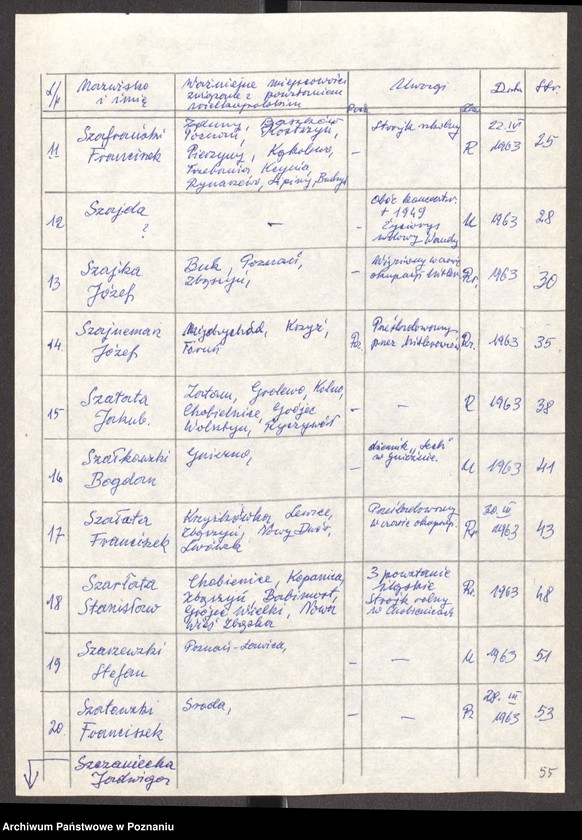 L/p Nazwisko i imię Ważniejsze miejscowości związane z powstaniem wielkopolskim Uwagi Data Str.
11 Szafrański Franciszek Zduny, Baszków
Poznań, Kostrzyn,
Kąkolewo,
Trzebania, Kcynia
Rynarzewo, Lipiny, Budzyń
– Strajk szkolny R 22.IV 1963 25
12 Szajda ? – – Obóz koncentr.
+ 1949
Życiorys
wdowy Wandy
M 1963 28
13 Szajka Józef Buk, Poznań,
Zbąszyń,
– Więziony w czasie
okupacji hitler.
Rz. 1963 30
14. Szajneman Józef Międzychód, Krzyż,
Toruń
Rz. Poćwiartowany
przez hitlerowców
Rz. 1963 35
15 Szałata Jakub. Złotów, Kolno,
Chobielnice, Grójec
Wolsztyn, Ryczywół
– – R 1963 38
16 Szałkowski Bogdan Gniezno, – dziennik „Lech”
w Gnieźnie.
M 1963 41
17 Szałata Franciszek Lewice,
Zbąszyń, Nowy Dwór,
Lwówek
– w czasie okupacji.
20.III 1963 43
18 Szarłata Stanisław Chobienice, Kopanica,
Zbąszyń, Babimost,
Grójec Wielki, Nowa
Wieś Zbąska
3 powstanie
śląskie
Strajk rolny
w Chobienicach
Rz. 1963 48
19 Szarzewski Stefan Poznań-Ławica, – – M 1963 51
20 Szatowski Franciszek Środa, – – Rz 28.III 1963 53
Szczaniecka
Jadwiga
55
Archiwum Państwowe w Poznaniu